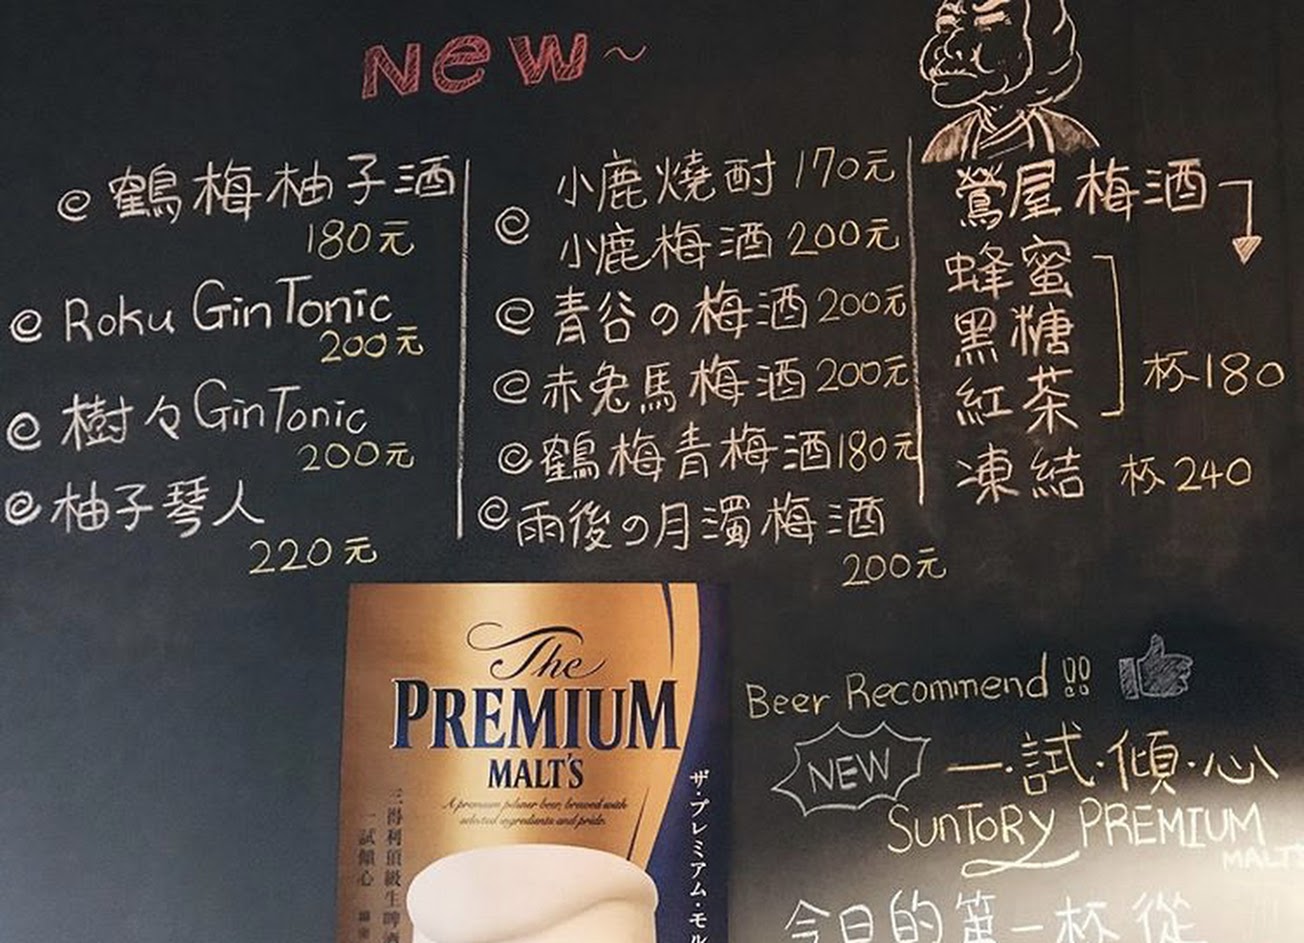 New~
@ 鶴梅柚子酒
180元
@ Roku GinTonic
200元
@ 樹々GinTonic
200元
@ 柚子琴人
220元
@ 小鹿燒酎 170元
小鹿梅酒 200元
@ 青谷の梅酒 200元
@ 赤兔馬梅酒 200元
@ 鶴梅青梅酒 180元
@ 雨後の月濁梅酒
200元
鶯屋梅酒
蜂蜜
黑糖
紅茶
杯180
凍結 杯240
The
PREMIUM
MALT'S
A premium pilsner beer, brewed with
selected ingredients and pride.
ザ・プレミアム・モル
三得利頂級生啤酒
一試傾心
Beer Recommend!!
NEW
一·試·傾·心
SUNTORY PREMIUM
MALT'S
今日的第一杯從